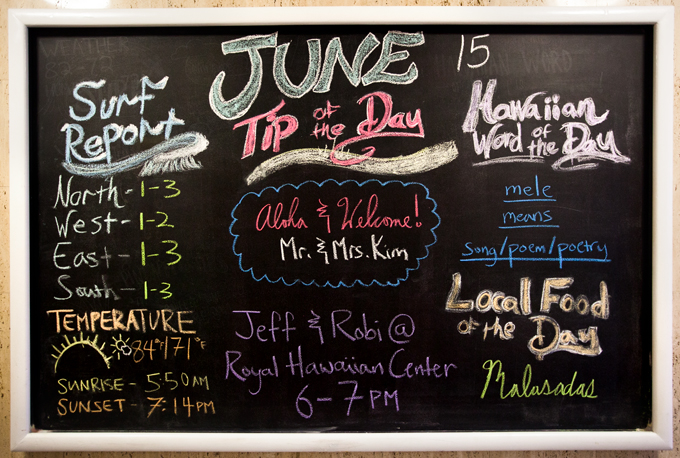 JUNE 15
Tip of the Day
Surf
Report
North - 1-3
West - 1-2
East - 1-3
South - 1-3
TEMPERATURE
84°/71°F
SUNRISE - 5:50 AM
SUNSET - 7:14 PM
Aloha & Welcome!
Mr. & Mrs. Kim
Jeff & Robi @
Royal Hawaiian Center
6-7 PM
Hawaiian
Word of the Day
mele
means
song/poem/poetry
Local Food
of the Day
Malasadas